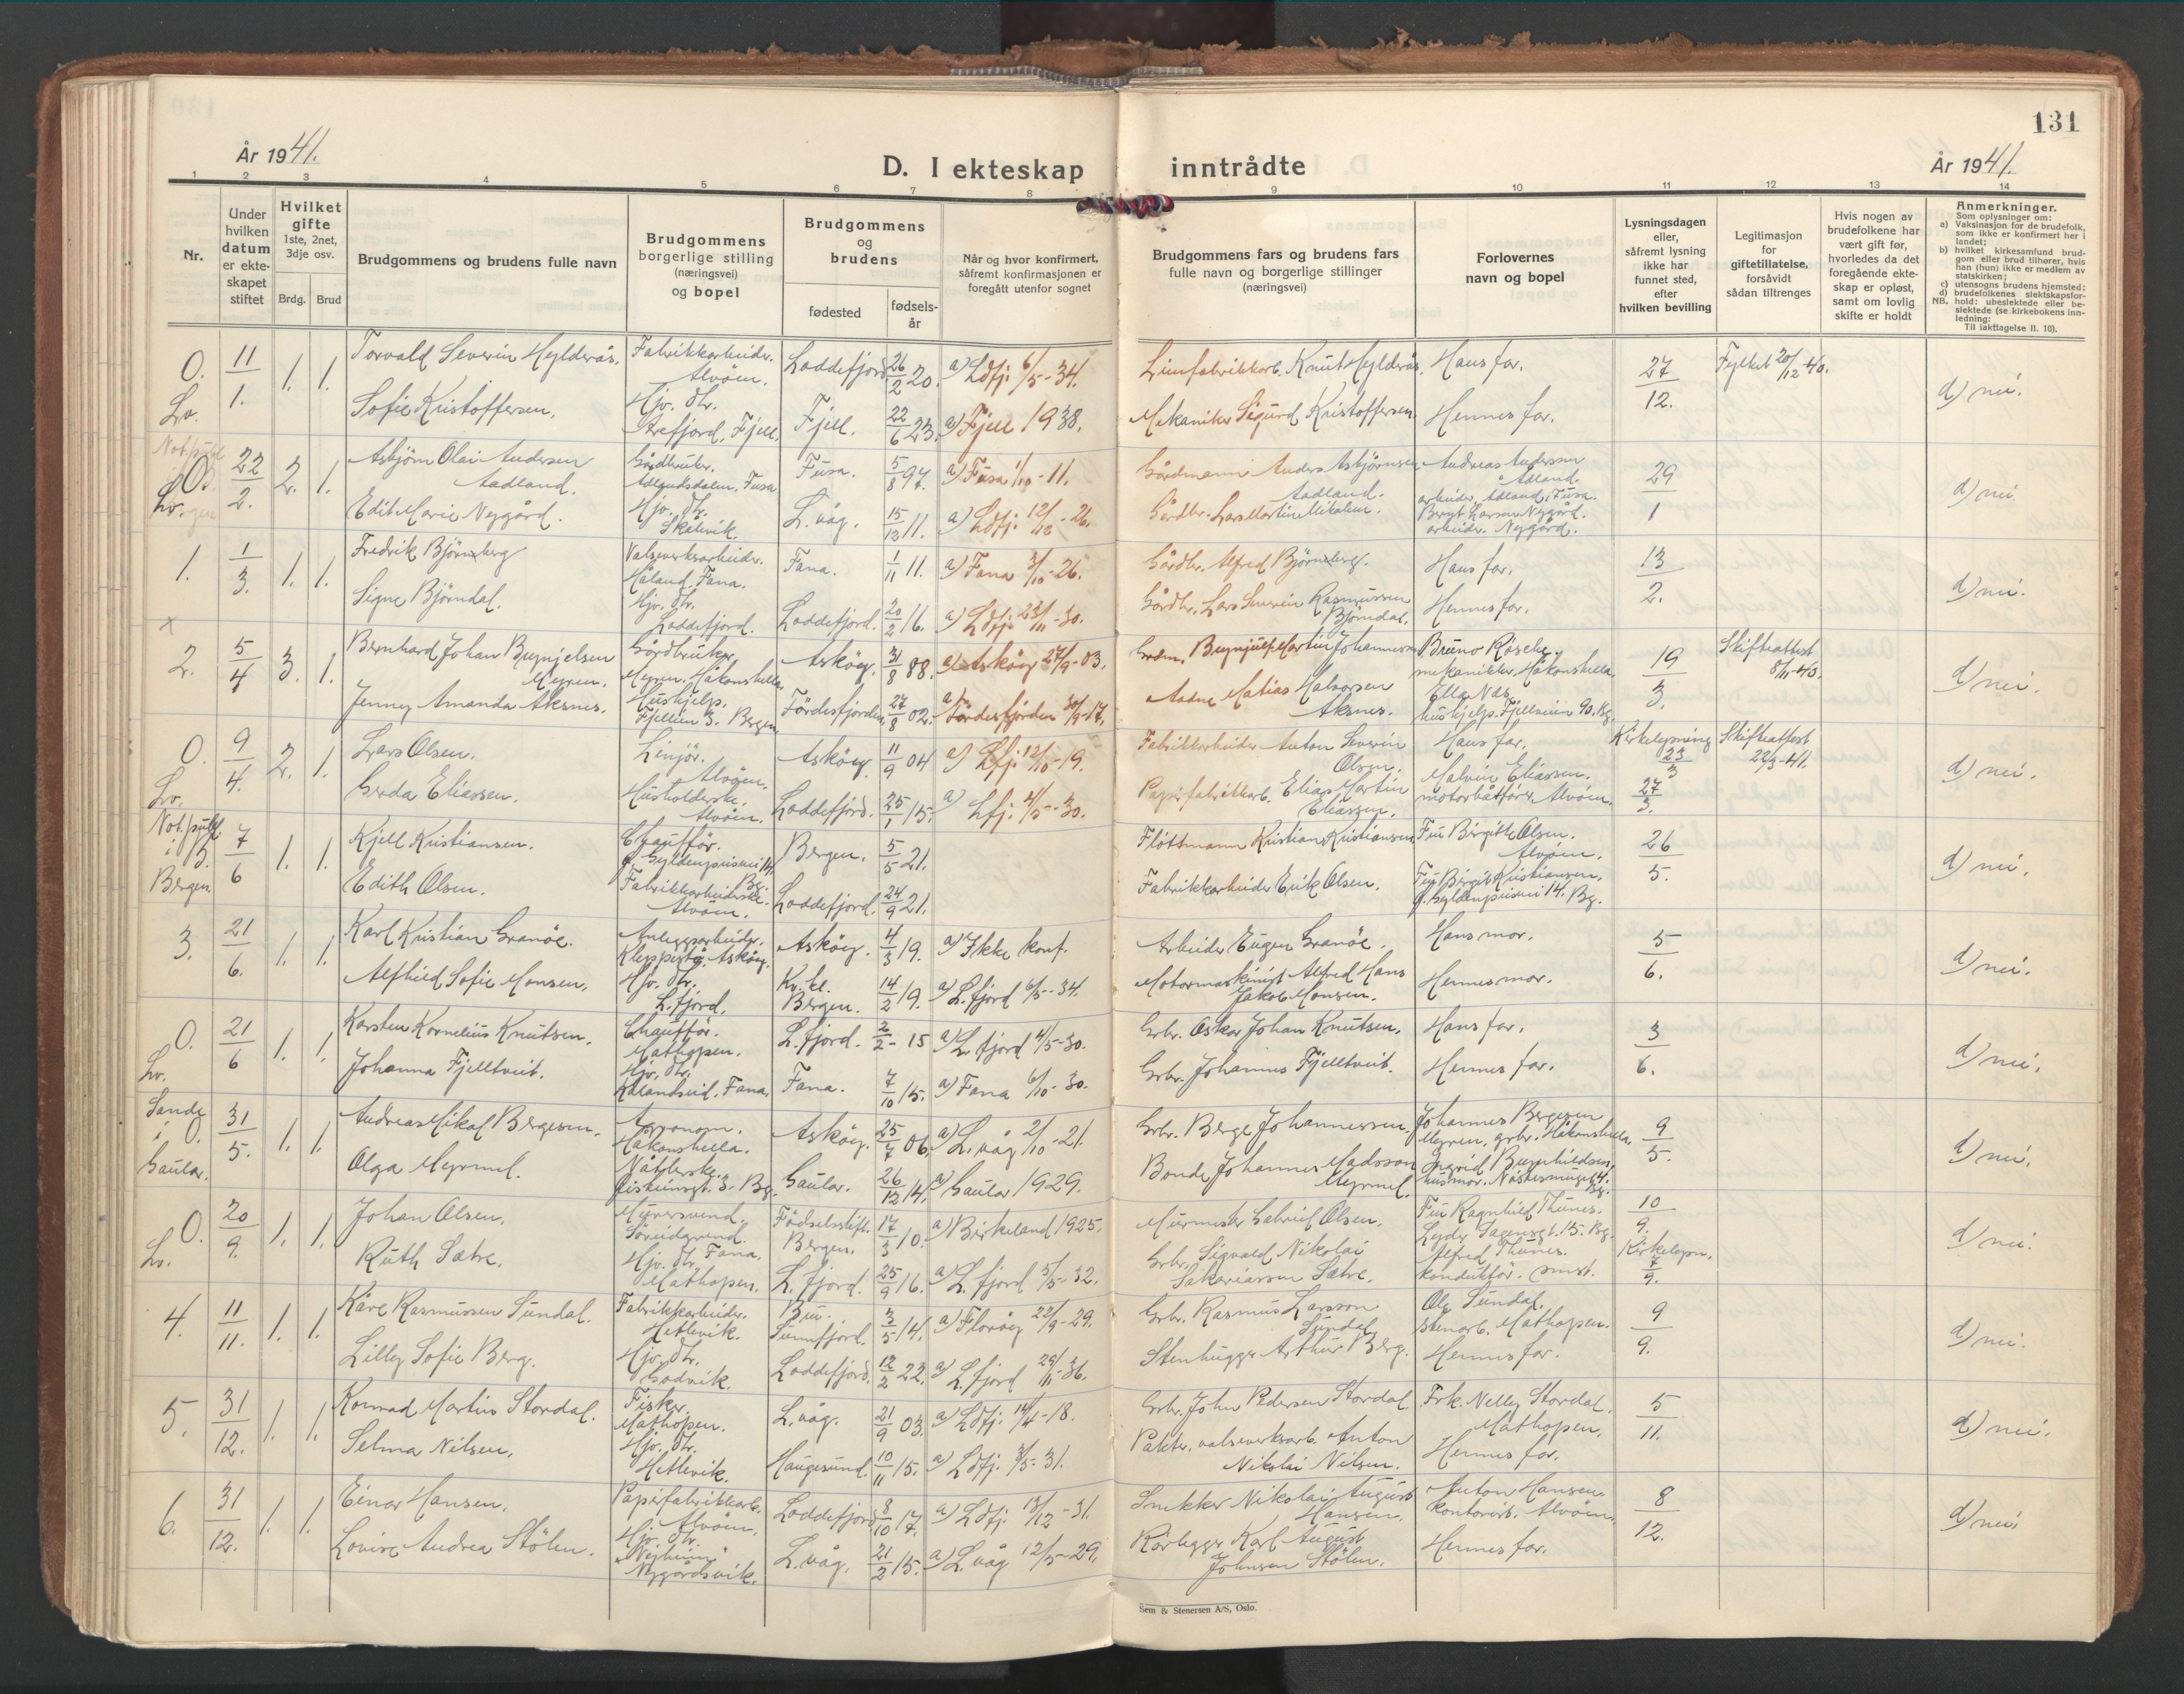 131
År 1941.
D. I ekteskap inntrådte
År 1941.
1 2 3 4 5 6 7 8 9 10 11 12 13 14
Nr.
Under hvilken datum er ekteskapet stiftet
Hvilket gifte 1ste, 2net, 3dje osv.
Brdg. Brud
Brudgommens og brudens fulle navn
Brudgommens borgerlige stilling (næringsvei) og bopel
Brudgommens og brudens
fødested
fødselsår
Når og hvor konfirmert, såfremt konfirmasjonen er foregått utenfor sognet
Brudgommens fars og brudens fars fulle navn og borgerlige stillinger (næringsvei)
Forlovernes navn og bopel
Lysningsdagen eller, såfremt lysning ikke har funnet sted, efter hvilken bevilling
Legitimasjon for giftetillatelse, forsåvidt sådan tiltrenges
Hvis nogen av brudefolkene har vært gift før, hvorledes da det foregående ekteskap er opløst, samt om lovlig skifte er holdt
Anmerkninger.
Som oplysninger om:
a) Vaksinasjon for de brudefolk, som ikke er konfirmert her i landet;
b) hvilket kirkesamfund brudgom eller brud tilhører, hvis han (hun) ikke er medlem av statskirken;
c) utensogns brudens hjemsted;
d) brudefolkenes slektskapsforhold: ubeslektede eller beslektede (se kirkebokens innledning:
NB.
Til iakttagelse II. 10).
0. Lv. 11/1. 1. 1. Torvald Severin Hylderås. Fabrikkarbeider. Alvöen. Loddefjord 26/2 20. a) Ldfj. 6/5-34. Limfabrikkarb. Knut Hylderås. Hans far. 27/12. Fylket 20/12-40. d) nei.
Sofie Kristoffersen. Hjv. dtr. Arefjord, Fjell. Fjell. 22/6 23. a) Fjell 1938. Mekaniker Sigurd Kristoffersen. Hennes far.
0. Lv. 22/2. 2. 1. Asbjörn Olai Andersen Aadland. Gårdbruker. Ådlandsdalen, Fusa Fusa. 5/8 97. a) Fusa 1/10-11. Gårdmann Anders Asbjörnsen Aadland. Andreas Andersen Ådland. arbeider, Ådland, Fusa. 29/1 d) nei.
Edit Marie Nygård. Hjv. dtr. Skålevik. L. våg. 15/12 11. a) Ldfj. 12/12-26. Gårdbr. Lars Martin Mikalsen. Bernt Larsen Nygård. arbeider. Nygård.
1. 1/3. 1. 1. Fredrik Björnsberg Valseverksarbeider. Håland, Fana. Fana. 1/11 11. a) Fana 3/10-26. Gårdbr. Alfred Björnsberg. Hans far. 13/2. d) nei.
Signe Björndal. Hjv. dtr. Loddefjord. Loddefjord. 20/2 16. a) Ldfj. 23/11-30. Gårdbr. Lars Severin Rasmussen Björndal. Hennes far.
x
2. 5/4 3. 1. Bernhard Johan Brynjelsen Myren. Gårdbruker. Myren, Håkonshella. Asköy. 31/8 88. a) Asköy 27/9-03. Brynjulf Martin Johannesen Bruno Rösche, mekanikker, Håkonshella. 19/3. Skifteattest 8/11-40. d) nei.
Jenny Amanda Aksnes. Hushjelp. Fjellien 3. Bergen Fördesfjorden. 27/8 02. a) Fördesfjorden 30/9-17. Aadne Matias Halvorsen Aksnes. Ella Næs, hushjelp. Fjellveien 90. Bg.
0. Lv. 9/4. 2. 1. Lars Olsen. Linjör. Alvöen. Asköy. 11/9 04 a) Lfj. 12/10-19. Fabrikkarbeider Anton Severin Olsen. Hans far. Kirkelysning 23/3 Skifteattest 22/3-41. d) nei.
Gerda Eliassen. Husholderske. Alvöen. Loddefjord. 25/1 15. a) Lfj. 4/5-30. Papirfabrikkarb. Elias Martin Eliassen. Malvin Eliassen. motorbåtförer Alvöen. 27/3.
Not. publ. i B. Bergen 7/6 1. 1. Kjell Kristiansen. Chauffør. Gyldenprisvei 14, Bg. Bergen. 5/5 21. Flöttmann Kristian Kristiansen. Fru Birgitte Olsen. Alvöen. 26/5. d) nei.
Edith Olsen. Fabrikkarbeiderske. Alvöen. Loddefjord. 24/9 21. Fabrikkarbeider Erik Olsen. Fru Birgit Kristiansen. Gyldenprisvei 14. Bg.
3. 21/6. 1. 1. Karl Kristian Granöe. Anleggsarbeider. Kleppestö, Asköy. Asköy. 4/3 19. a) Ikke konf. Arbeider Eugen Granöe. Hans mor. 5/6. d) nei.
Alfhild Sofie Monsen. Hjv. dtr. L. fjord. Kv. kl. Bergen. 14/2 19. a) L. fjord 6/5-34. Motormaskinist Alfred Hans Jakob Monsen. Hennes mor.
0. Lv. 21/6 1. 1. Karsten Kornelius Knutsen. Chauffør. Mathopen. L. fjord. 2/2-15 a) L. fjord 4/5-30. Grbr. Oskar Johan Knutsen. Hans far. 3/6. d) nei.
Johanna Fjelltveit. Hjv. dtr. Kalandseid, Fana. Fana. 7/10 15. a) Fana 6/10-30. Grbr. Johannes Fjelltveit. Hennes far.
Sande i Gaular. 0. 31/5. 1. 1. Andreas Mikal Bergesen. Agronom. Håkonshella. Asköy. 25/7 06. a) L. våg 2/10-21. Grbr. Berge Johannessen. Johannes Bergesen Myren, grbr. Håkonshella. 9/5. d) nei.
Olga Myrmel. Nåtlerske. 3. Bg. Gaular. 26/12 14. a) Gaular 1929. Bonde Johannes Madsson Myrmel. Ingrid Brynhildsen, husmor. Bg.
0. Lv. 20/9. 1. 1. Johan Olsen. Murersvend. Söreidgrend. Fana. Födselsstift. Bergen. 17/3 10. a) Birkeland 1925. Murmester Gabriel Olsen. Fru Ragnhild Thunes. Lyder Sagensgt. 15. Bg. 10/9. d) nei.
Ruth Sætre. Hjv. dtr. Mathopen. L. fjord. 25/9 16. a) L. fjord 5/5-32. Grbr. Sigvald Nikolai Sakariassen Sætre. Alfred Thunes. konduktör. smst. Kirkelysn. 7/9.
4. 11/11. 1. 1. Kåre Rasmussen Sundal. Fabrikkarbeider. Hetlevik. Bru. Sunnfjord. 3/5 14. a) Florøy 22/9-29. Grbr. Rasmus Larsson Sundal. Ola Sundal, stenarb. Mathopen. 9/9. d) nei.
Lilly Sofie Berg. Hjv. dtr. Godvik. Loddefjord. 12/2 22. a) L. fjord 29/11-36. Stenhugger Arthur Berg. Hennes far.
5. 31/12. 1. 1. Konrad Martin Stordal. Fisker. Mathopen. L. våg. 21/9 03. a) Ldfj. 14/4-18. Grbr. John Pedersen Stordal. Frk. Nelly Stordal. Mathopen. 5/11. d) nei.
Selma Nilsen. Hjv. dtr. Hetlevik. Haugesund. 10/11 15. a) Ldfj. 3/5-31. valseverksarb. Anton Nikolai Nilsen. Hennes far.
6. 31/12. 1. 1. Einar Hansen. Papirfabrikkarb. Alvöen. Loddefjord 8/10 17. a) Ldfj. 13/12-31. Snekker Nikolai August Hansen. Anton Hansen. kontorist. Alvöen. 8/12. d) nei.
Lovise Andrea Stölen. Hjv. dtr. Nygårdsvik. L. våg. 21/2 15. a) L. våg 12/5-29. Rörlegger Karl August Johnsen Stölen. Hennes far.
Sem & Stenersen A/S, Oslo.